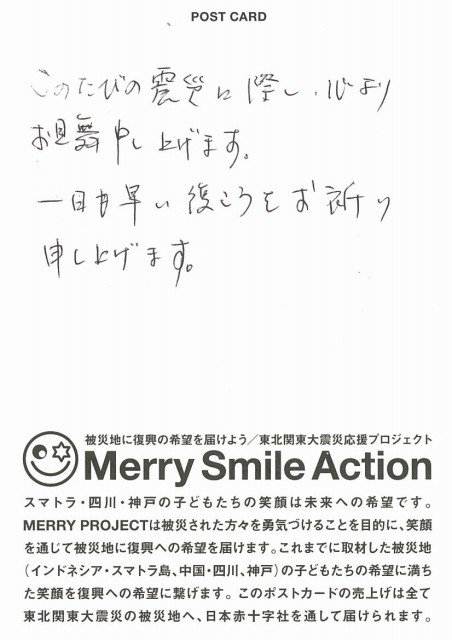 POST CARD
このたびの震災に際し、心より
お見舞申し上げます。
一日も早い復こうをお祈り
申し上げます。
被災地に復興の希望を届けよう／東北関東大震災応援プロジェクト
Merry Smile Action
スマトラ・四川・神戸の子どもたちの笑顔は未来への希望です。
MERRY PROJECTは被災された方々を勇気づけることを目的に、笑顔
を通じて被災地に復興への希望を届けます。これまでに取材した被災地
（インドネシア・スマトラ島、中国・四川、神戸）の子どもたちの希望に満ち
た笑顔を復興への希望に繋げます。このポストカードの売上げは全て
東北関東大震災の被災地へ、日本赤十字社を通して届けられます。